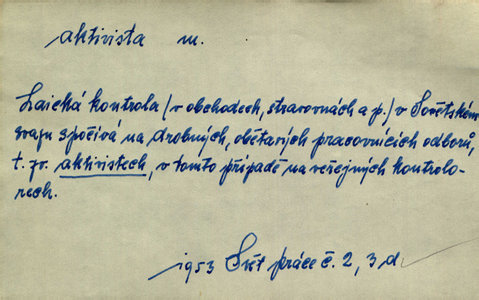 aktivista m.
Laická kontrola /v obchodech, stravovnách a p./ v Sovětském
svazu spočívá na drobných, obětavých pracovnících odborů,
t. zv. aktivistech, v tomto případě na veřejných kontrolo-
rech.
1953 Svět práce č. 2, 3 d.